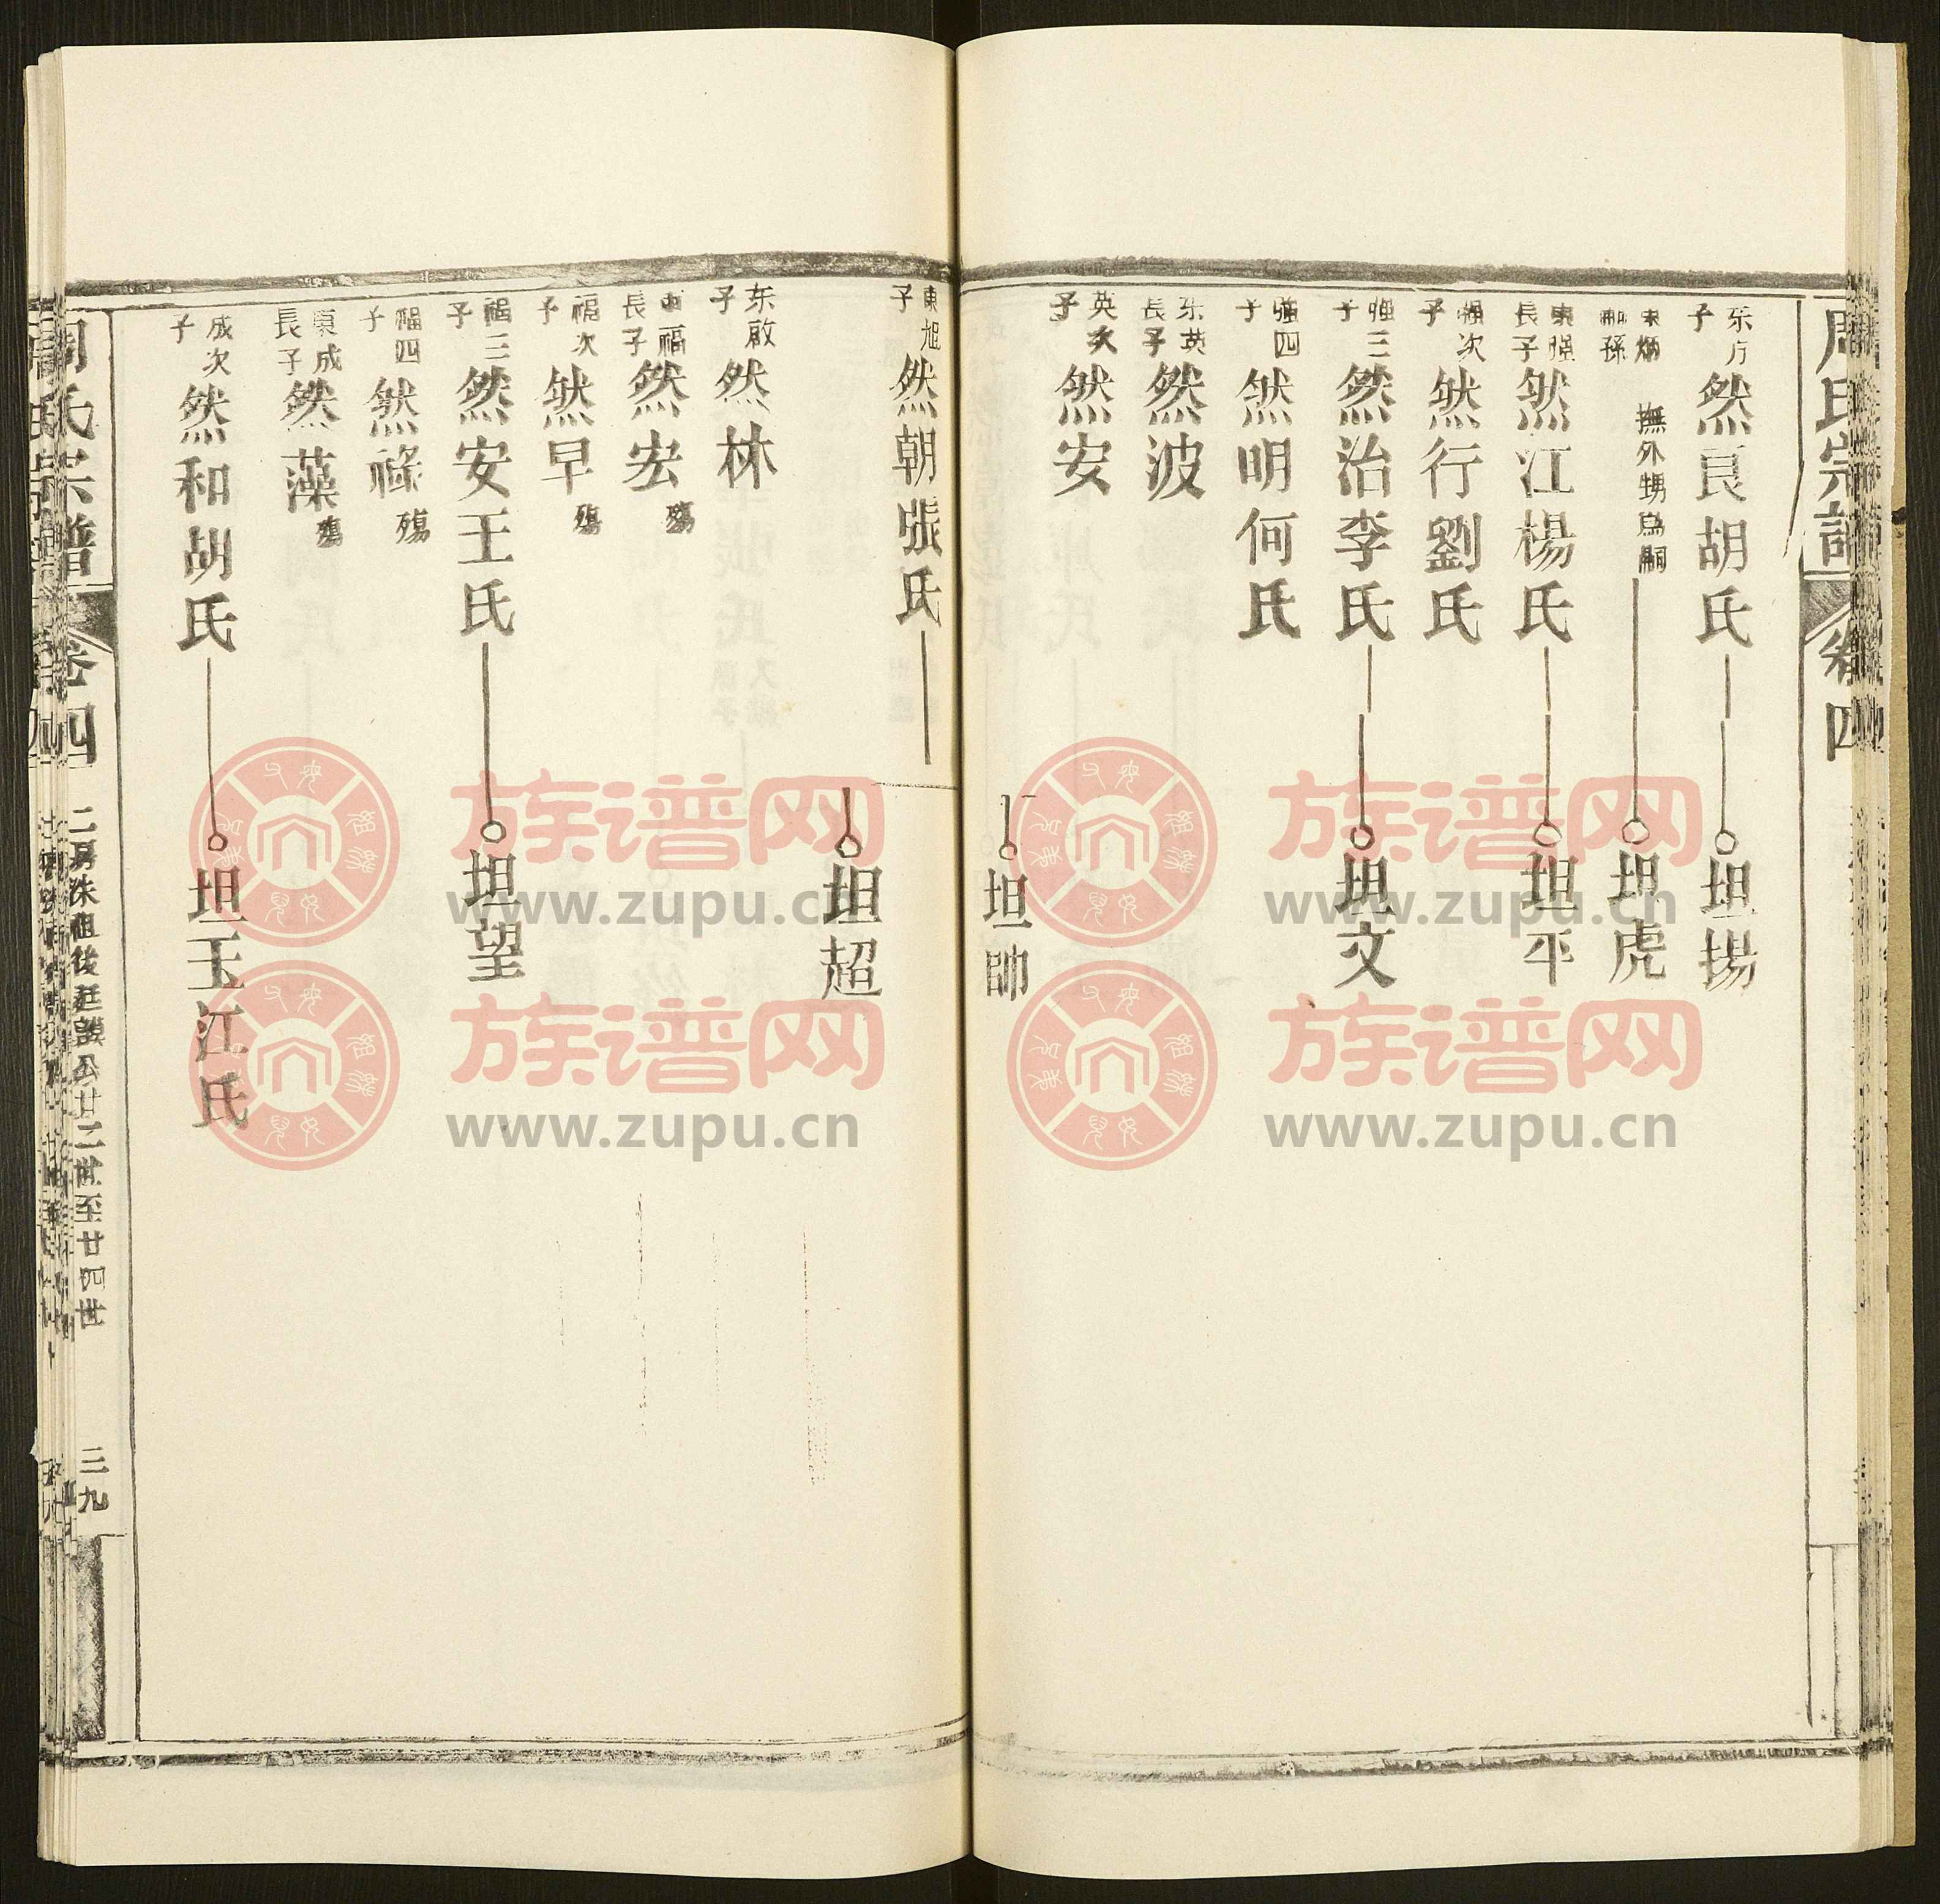 周氏宗譜 卷四
东方子 然良胡氏 坦揚
東炳嗣孫 撫外甥為嗣 坦虎
東强長子 然江楊氏 坦平
强次子 然行劉氏
强三子 然治李氏 坦文
强四子 然明何氏
东英長子 然波
英次子 然安
坦帥
東旭子 然朝張氏
坦超
东啟子 然林
福長子 然宏 殤
福次子 然早 殤
福三子 然安王氏 坦望
福四子 然祿 殤
東成長子 然藻 殤
成次子 然和胡氏 坦玉江氏
周氏宗譜 卷四 二房洙祖後廷謨公廿二世至廿四世 三九
族谱网
www.zupu.cn
族谱网
www.zupu.cn
族谱网
www.zupu.cn
族谱网
www.zupu.cn